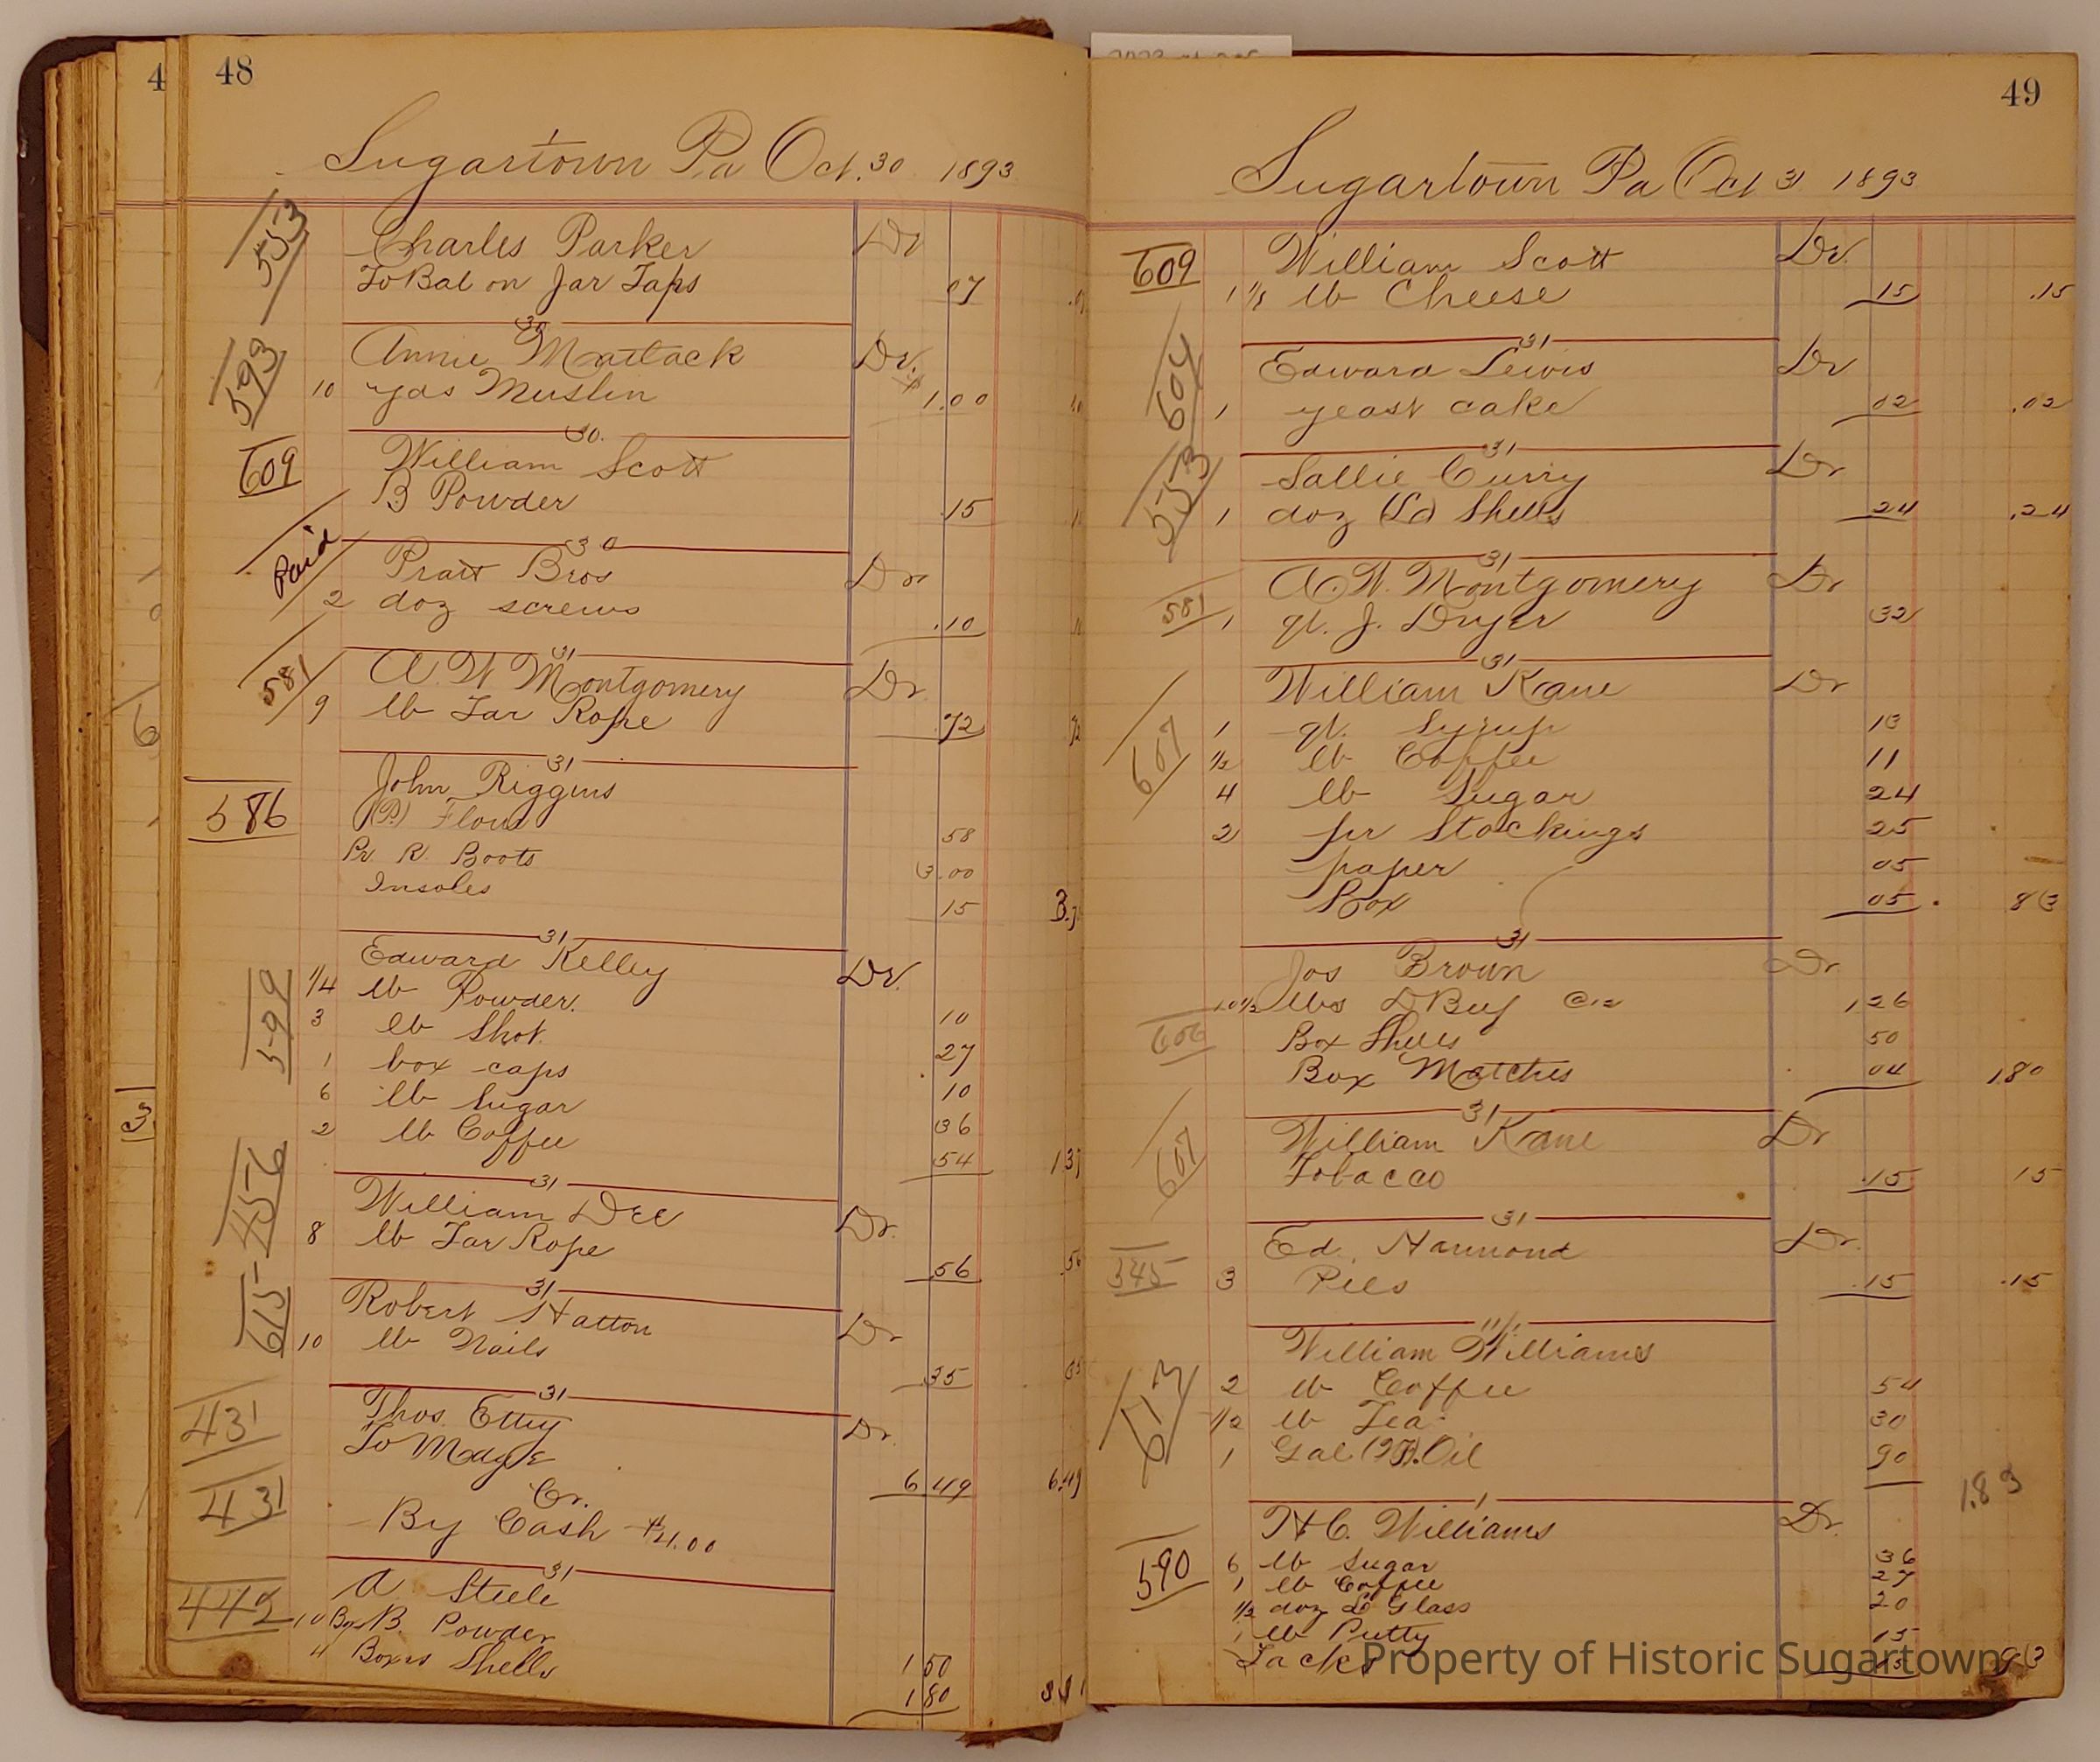 4
48
Sugartown Pa Oct. 30 1893
553
Charles Parker Dr
To Bal on Jar Taps 07
30
593
Annie Matlack Dr.
10 yds Muslin 1.00
30.
609
William Scott
B Powder .15
30
Paid
Pratt Bros Dr
2 doz screws .10
31
581
A. W Montgomery Dr.
9 lb Tar Rope .72
31
586
John Riggins
(P.) Flour 58
Pr. R. Boots 3.00
Insoles 15
31
599
Edward Kelley Dr.
1/4 lb Powder. 10
3 lb Shot. 27
1 box caps 10
6 lb Sugar 36
2 lb Coffee 54
31
456
William Dee Dr.
8 lb Tar Rope .56
31
615
Robert Hatton Dr
10 lb Nails .35
31
431
Thos. Etty Dr.
To Mdge 6.49 6.49
431
Cr.
By Cash $4.00
31
442
A. Steele
10 Bgs B. Powder 1 50
4 Boxes Shells 1 80
49
Sugartown Pa Oct 31 1893
609
William Scott Dr.
1 1/8 lb Cheese 15 .15
31
604
Edward Lewis Dr
1 yeast cake 02 .02
31
553
Sallie Curry Dr
1 doz (Ld) Shells 24 .24
31
581
A. W. Montgomery Dr
1 qt. J. Dryer 32
31
607
William Kane Dr
1 qt. Syrup 13
1/2 lb Coffee 11
4 lb Sugar 24
2 pr Stockings 25
paper 05
Box 05 83
31
606
Jos Brown Dr
10 1/2 lbs D Beef @12 1,26
Box Shells 50
Box Matches 04 1.80
31
607
William Kane Dr
Tobacco .15 15
31
345
Ed. Hammond Dr.
3 Pies .15 .15
11/1
613
William Williams
2 lb Coffee 54
1/2 lb Tea 30
1 Gal Oil 90
1.83
1
590
H C. Williams Dr.
6 lb Sugar 36
1 lb Coffee 27
1/2 doz L Glass 20
1 lb Putty 15
Tacks
Property of Historic Sugartown